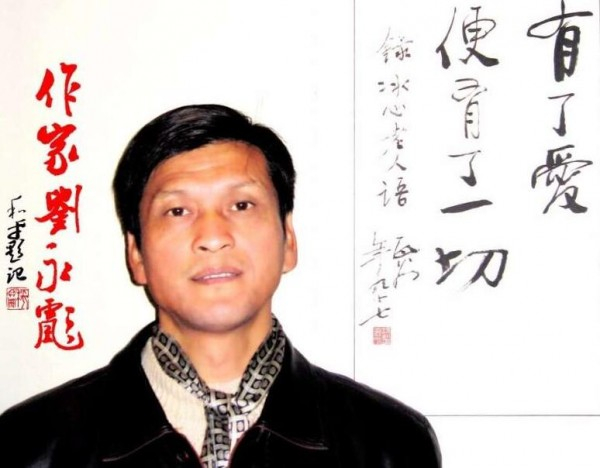 有了愛
便有了一切
錄冰心老人语
年九十七
作家劉永彪
和平題记